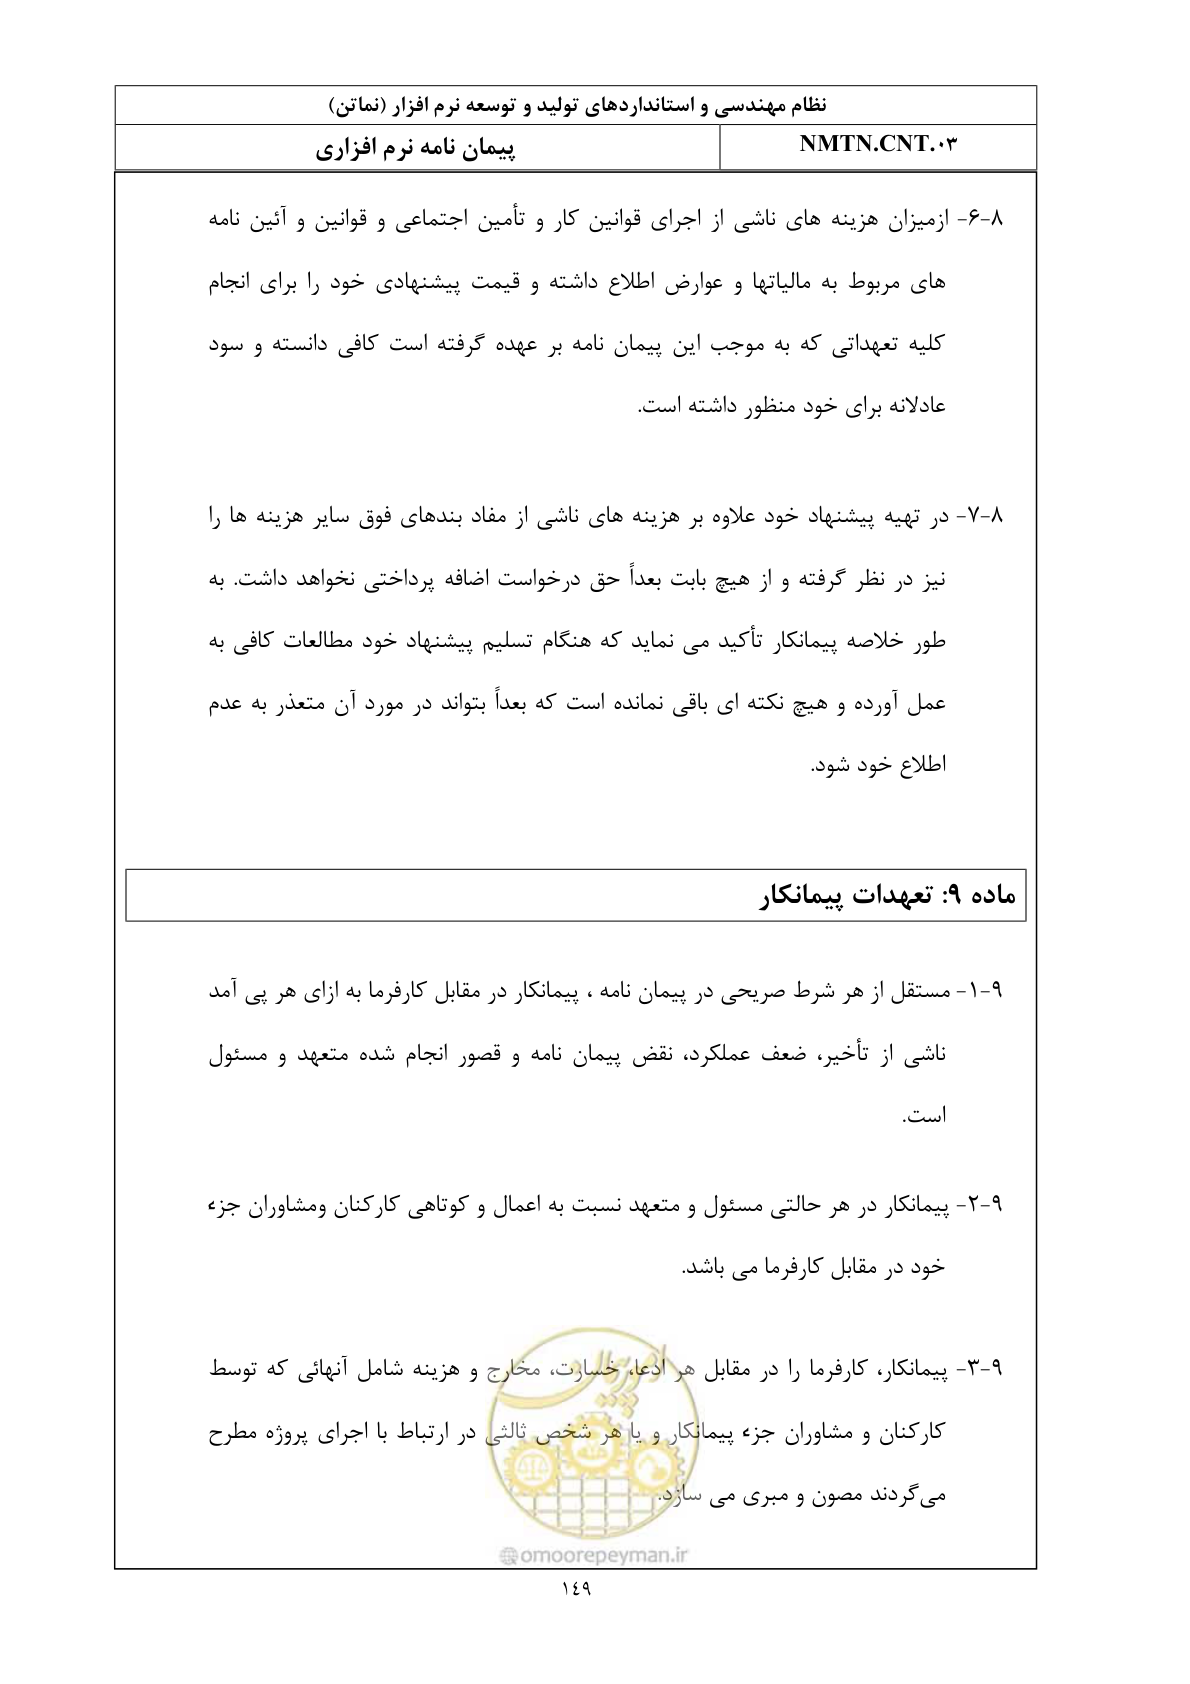 نظام مهندسی و استانداردهای تولید و توسعه نرم افزار (نماتن)
NMTN.CNT.۰۳
پیمان نامه نرم افزاری
۸-۶- ازمیزان هزینه های ناشی از اجرای قوانین کار و تأمین اجتماعی و قوانین و آئین نامه
های مربوط به مالیاتها و عوارض اطلاع داشته و قیمت پیشنهادی خود را برای انجام
کلیه تعهداتی که به موجب این پیمان نامه بر عهده گرفته است کافی دانسته و سود
عادلانه برای خود منظور داشته است.
۸-۷- در تهیه پیشنهاد خود علاوه بر هزینه های ناشی از مفاد بندهای فوق سایر هزینه ها را
نیز در نظر گرفته و از هیچ بابت بعداً حق درخواست اضافه پرداختی نخواهد داشت. به
طور خلاصه پیمانکار تأکید می نماید که هنگام تسلیم پیشنهاد خود مطالعات کافی به
عمل آورده و هیچ نکته ای باقی نمانده است که بعداً بتواند در مورد آن متعذر به عدم
اطلاع خود شود.
ماده ۹: تعهدات پیمانکار
۹-۱- مستقل از هر شرط صریحی در پیمان نامه ، پیمانکار در مقابل کارفرما به ازای هر پی آمد
ناشی از تأخیر، ضعف عملکرد، نقض پیمان نامه و قصور انجام شده متعهد و مسئول
است.
۹-۲- پیمانکار در هر حالتی مسئول و متعهد نسبت به اعمال و کوتاهی کارکنان ومشاوران جزء
خود در مقابل کارفرما می باشد.
۹-۳- پیمانکار، کارفرما را در مقابل هر ادعا، خسارت، مخارج و هزینه شامل آنهائی که توسط
کارکنان و مشاوران جزء پیمانکار و یا هر شخص ثالثی در ارتباط با اجرای پروژه مطرح
می‌گردند مصون و مبری می سازد.
امور پیمان
@omoorepeyman.ir
١٤٩